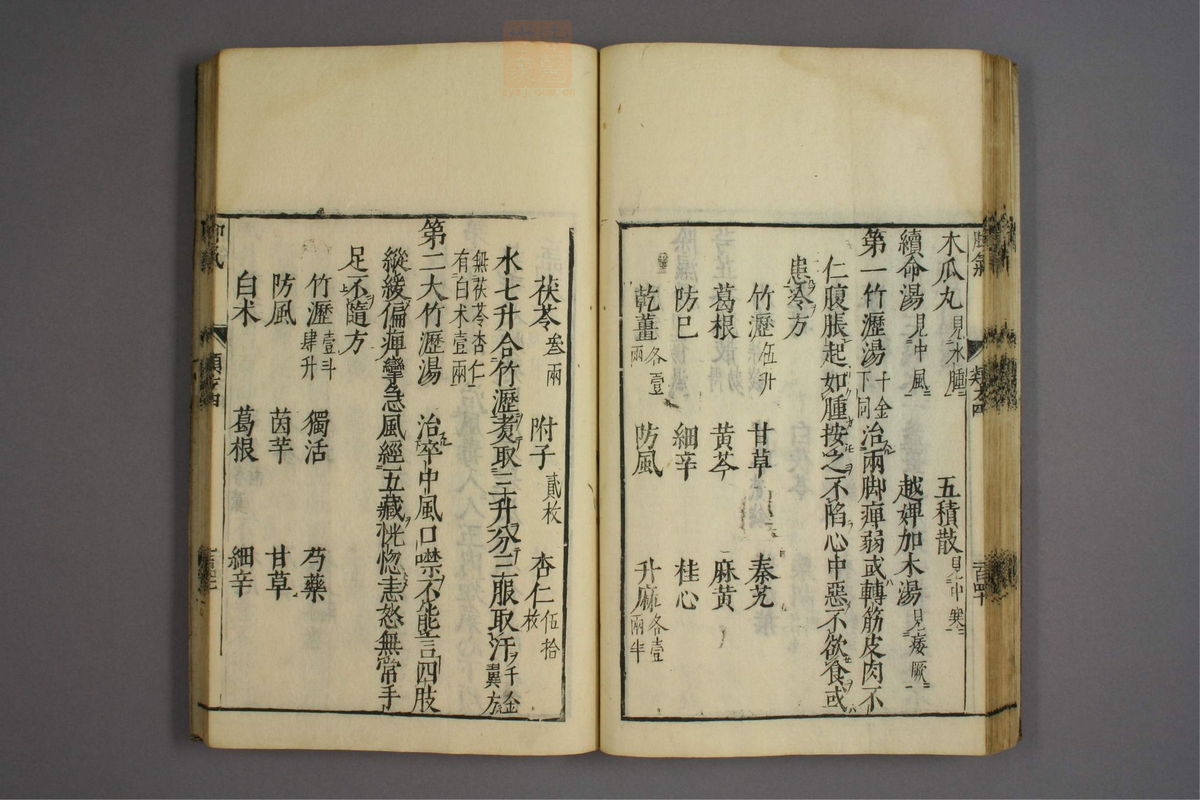 木瓜丸見水腫 五積散見中寒
續命湯見中風 越婢加朮湯見痿厥
第一竹瀝湯千金下同治兩脚痺弱或轉筋皮肉不
仁腹脹起如腫按之不陷心中惡不欲食或
患冷方
竹瀝伍升 甘草 秦艽
葛根 黃芩 麻黃
防已 細辛 桂心
乾薑各壹兩 防風 升麻各壹兩半
茯苓叁兩 附子貳枚 杏仁伍拾枚
水七升合竹瀝煑取三升分三服取汗千金翼方
無茯苓杏仁有白术壹兩
第二大竹瀝湯 治卒中風口噤不能言四肢
縱緩偏痺攣急風經五藏恍惚恚怒無常手
足不隨方
竹瀝壹斗肆升 獨活 芍藥
防風 茵芋 甘草
白术 葛根 細辛